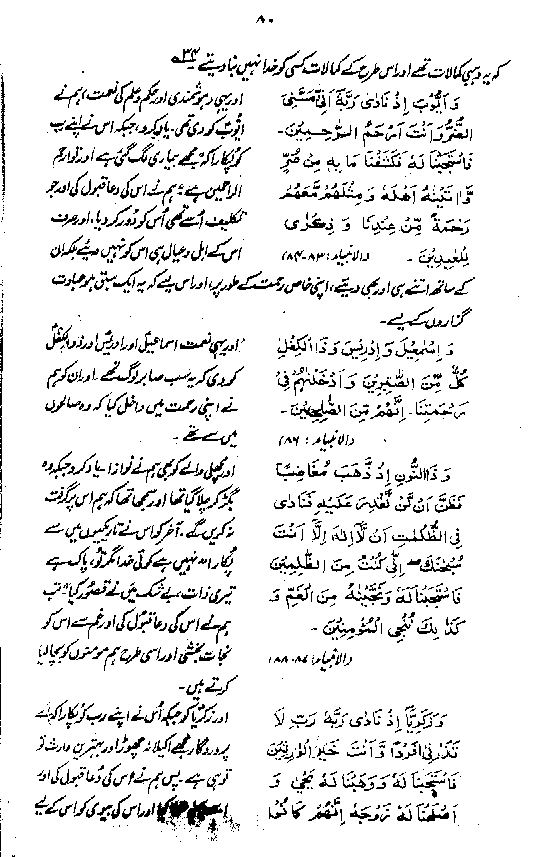 ۸۰
کہ یہ وہبی کمالات تھے اور اس طرح کے کمالات کسی کو خدا نہیں بنا دیتے ۳۴؎
وَ اَیُّوۡبَ اِذۡ نَادٰی رَبَّهٗۤ اَنِّیۡ مَسَّنِیَ
الضُّرُّ وَاَنۡتَ اَرۡحَمُ الرّٰحِمِیۡنَ۔
فَاسۡتَجَبۡنَا لَهٗ فَکَشَفۡنَا مَا بِهٖ مِنۡ ضُرٍّ
وَّاٰتَیۡنٰهُ اَهۡلَهٗ وَمِثۡلَهُمۡ مَّعَهُمۡ
رَحۡمَةً مِّنۡ عِنۡدِنَا وَ ذِکۡرٰی
لِلۡعٰبِدِیۡنَ۔ (الانبیاء: ۸۳-۸۴)
اور یہی (ہوشمندی اور حکم و علم کی نعمت) ہم نے
ایوبؑ کو دی تھی۔ یاد کرو، جبکہ اس نے اپنے رب
کو پکارا کہ مجھے بیماری لگ گئی ہے اور تو ارحم
الراحمین ہے، ہم نے اس کی دعا قبول کی اور جو
تکلیف اسے تھی اُس کو دور کر دیا، اور صرف
اس کے اہل و عیال ہی اس کو نہیں دیئے بلکہ ان
کے ساتھ اتنے ہی اور بھی دیئے، اپنی خاص رحمت کے طور پر، اور اس لیے کہ یہ ایک سبق ہو عبادت
گزاروں کے لیے۔
وَ اِسۡمٰعِیۡلَ وَ اِدۡرِیۡسَ وَ ذَا الۡکِفۡلِ
کُلٌّ مِّنَ الصّٰبِرِیۡنَ وَ اَدۡخَلۡنٰهُمۡ فِیۡ
رَحۡمَتِنَا۔ اِنَّهُمۡ مِّنَ الصّٰلِحِیۡنَ۔
(الانبیاء: ۸۶)
اور یہی نعمت اسماعیل اور ادریس اور ذوالکفل
کو دی کہ یہ سب صابر لوگ تھے۔ اور ان کو ہم
نے اپنی رحمت میں داخل کیا کہ وہ صالحوں
میں سے تھے۔
وَ ذَا النُّوۡنِ اِذۡ ذَّهَبَ مُغَاضِبًا
فَظَنَّ اَنۡ لَّنۡ نَّقۡدِرَ عَلَیۡهِ فَنَادٰی
فِی الظُّلُمٰتِ اَنۡ لَّاۤ اِلٰهَ اِلَّاۤ اَنۡتَ
سُبۡحٰنَكَ اِنِّیۡ کُنۡتُ مِنَ الظّٰلِمِیۡنَ
فَاسۡتَجَبۡنَا لَهٗ وَنَجَّیۡنٰهُ مِنَ الۡغَمِّ وَ
کَذٰلِكَ نُنۡجِی الۡمُؤۡمِنِیۡنَ۔
(الانبیاء: ۸۷-۸۸)
اور مچھلی والے کو بھی ہم نے نوازا۔ یاد کرو جبکہ وہ
بگڑ کر چلا گیا تھا اور سمجھا تھا کہ ہم اس پر گرفت
نہ کریں گے۔ آخر کو اس نے تاریکیوں میں سے
پکارا "نہیں ہے کوئی خدا مگر تو، پاک ہے
تیری ذات، بے شک میں نے قصور کیا" تب
ہم نے اس کی دعا قبول کی اور غم سے اس کو
نجات بخشی اور اسی طرح ہم مومنوں کو بچا لیا
کرتے ہیں۔
وَ زَکَرِیَّاۤ اِذۡ نَادٰی رَبَّهٗ رَبِّ لَا
تَذَرۡنِیۡ فَرۡدًا وَّ اَنۡتَ خَیۡرُ الۡوٰرِثِیۡنَ
فَاسۡتَجَبۡنَا لَهٗ وَ وَهَبۡنَا لَهٗ یَحۡیٰی وَ
اَصۡلَحۡنَا لَهٗ زَوۡجَهٗ اِنَّهُمۡ کَانُوۡا
اور زکریاؑ کو جبکہ اُس نے اپنے رب کو پکارا کہ اے
پروردگار مجھے اکیلا نہ چھوڑ اور بہترین وارث تو
تو ہی ہے۔ پس ہم نے اس کی دعا قبول کی اور
اور اس کی بیوی کو اس کے لیے